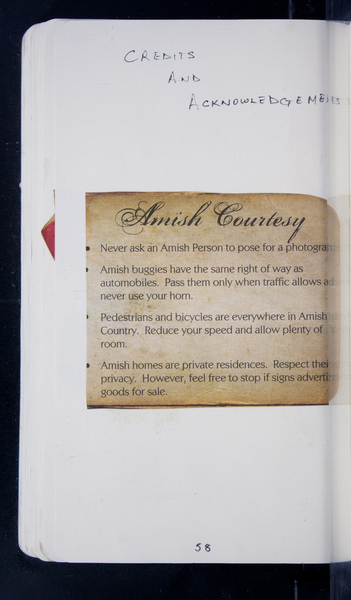 CREDITS
AND
ACKNOWLEDGEMENTS
Amish Courtesy
• Never ask an Amish Person to pose for a photograph
• Amish buggies have the same right of way as
automobiles. Pass them only when traffic allows
never use your horn.
• Pedestrians and bicycles are everywhere in Amish
Country. Reduce your speed and allow plenty of
room.
• Amish homes are private residences. Respect their
privacy. However, feel free to stop if signs
goods for sale.
58